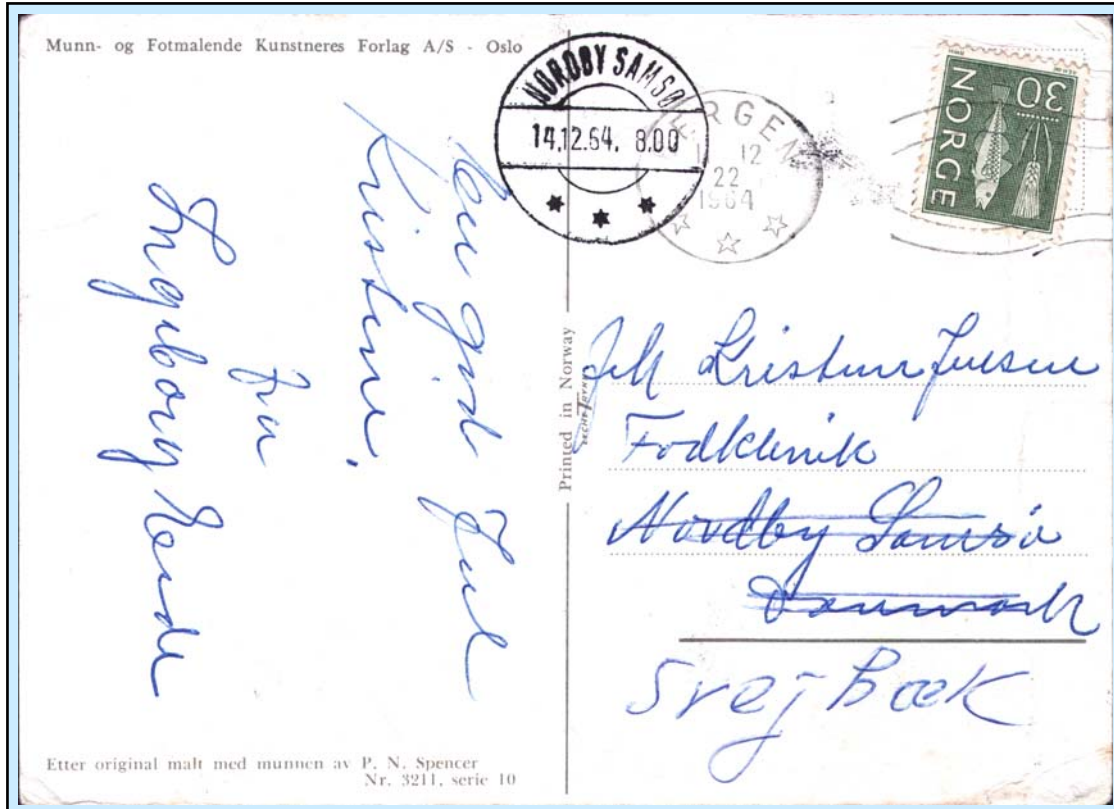 Munn- og Fotmalende Kunstneres Forlag A/S - Oslo
NORDBY SAMSØ
14.12.64. 8.00
BERGEN
12
22
1964
NORGE
30
En god Jul
Kristine.
fra
Ingeborg
Printed in Norway
Kristine Juesen
Fodklinik
Nordby Samsø
Danmark
Svejbæk
Etter original malt med munnen av P. N. Spencer
Nr. 3211, serie 10